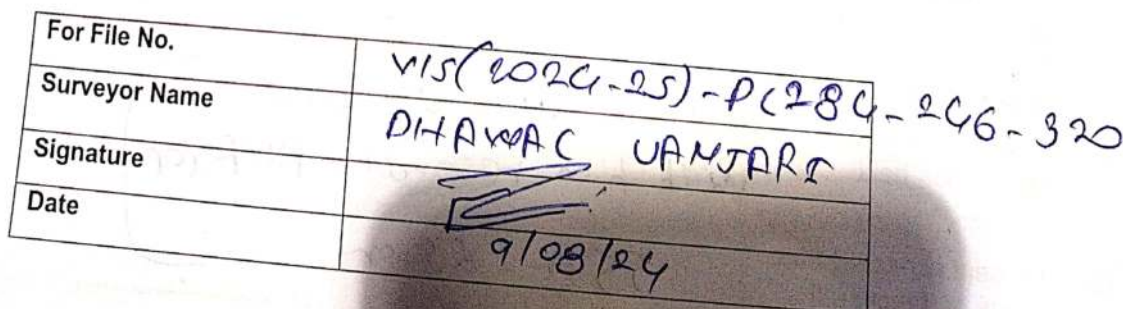 For File No. VIS(2024-25)-PL284-246-320
Surveyor Name DHAWAL VANJARI
Signature
Date 9/08/24